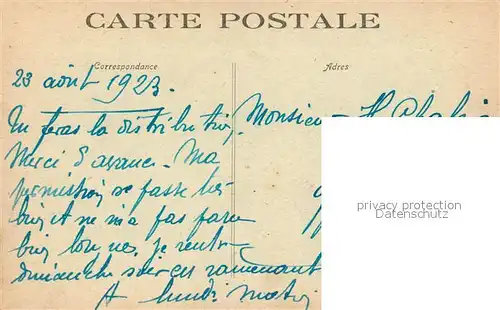 CARTE POSTALE
Correspondance
Adres
23 août 1923.
Tu feras la distribution,
Monsieur H
Merci d'avance. Ma
permission se passe très
bien et ne m'a pas paru
bien longue. Je rentre
dimanche soir en ramenant
A lundi matin
privacy protection
Datenschutz